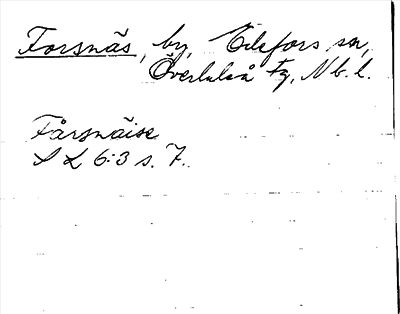 Forsnäs, by, Edefors sn,
Överluleå Fg, Nb. l.
Fårsnäise
S L 6:3 s. 7.